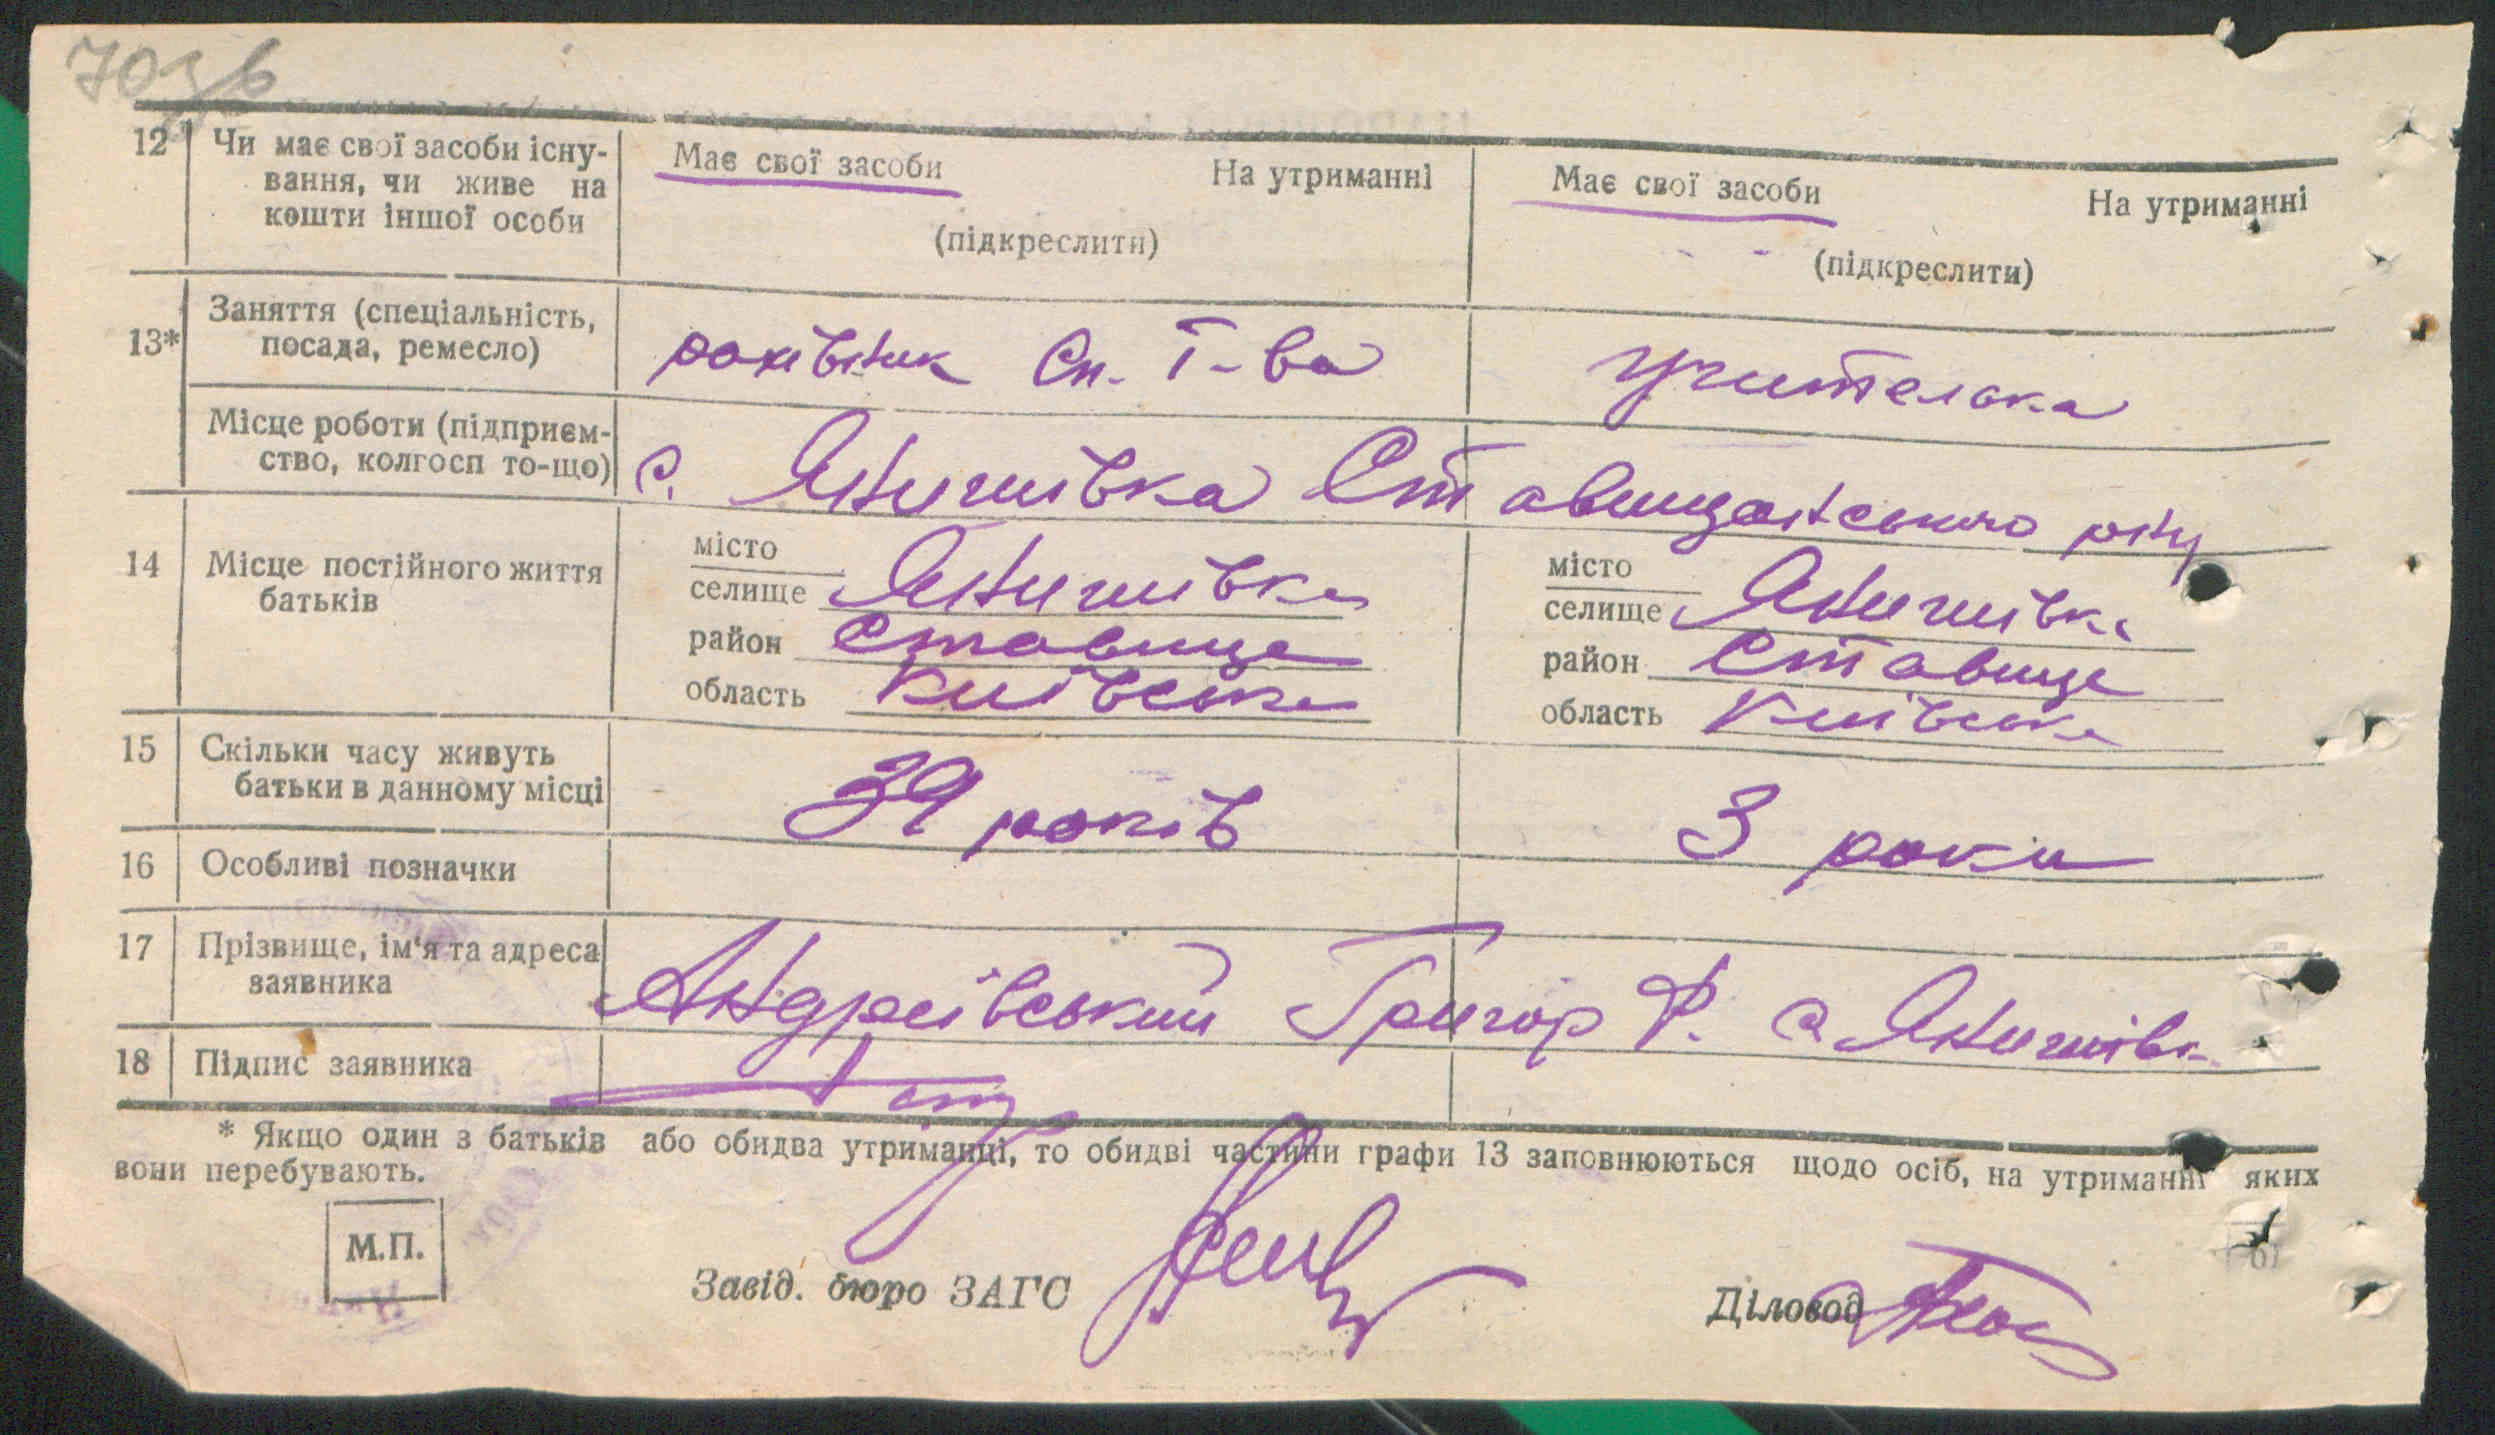 12 Чи має свої засоби існу-
вання, чи живе на
кошти іншої особи
Має свої засоби На утриманні
(підкреслити)
Має свої засоби На утриманні
(підкреслити)
13* Заняття (спеціальність,
посада, ремесло)
Сп. т-ва
учителька
Місце роботи (підприєм-
ство, колгосп то-що)
с. Янишівка Ставищанського р-ну
14 Місце постійного життя
батьків
місто
селище Янишівка
район Ставище
область Київська
місто
селище Янишівка
район Ставище
область Київська
15 Скільки часу живуть
батьки в данному місці
39 років
3 роки
16 Особливі позначки
17 Прізвище, ім'я та адреса
заявника
Андрієвський Григор Ф. с Янишівк
18 Підпис заявника
* Якщо один з батьків або обидва утриманці, то обидві частини графи 13 заповнюються щодо осіб, на утриманні яких
вони перебувають.
М.П.
Завід. бюро ЗАГС
Діловод